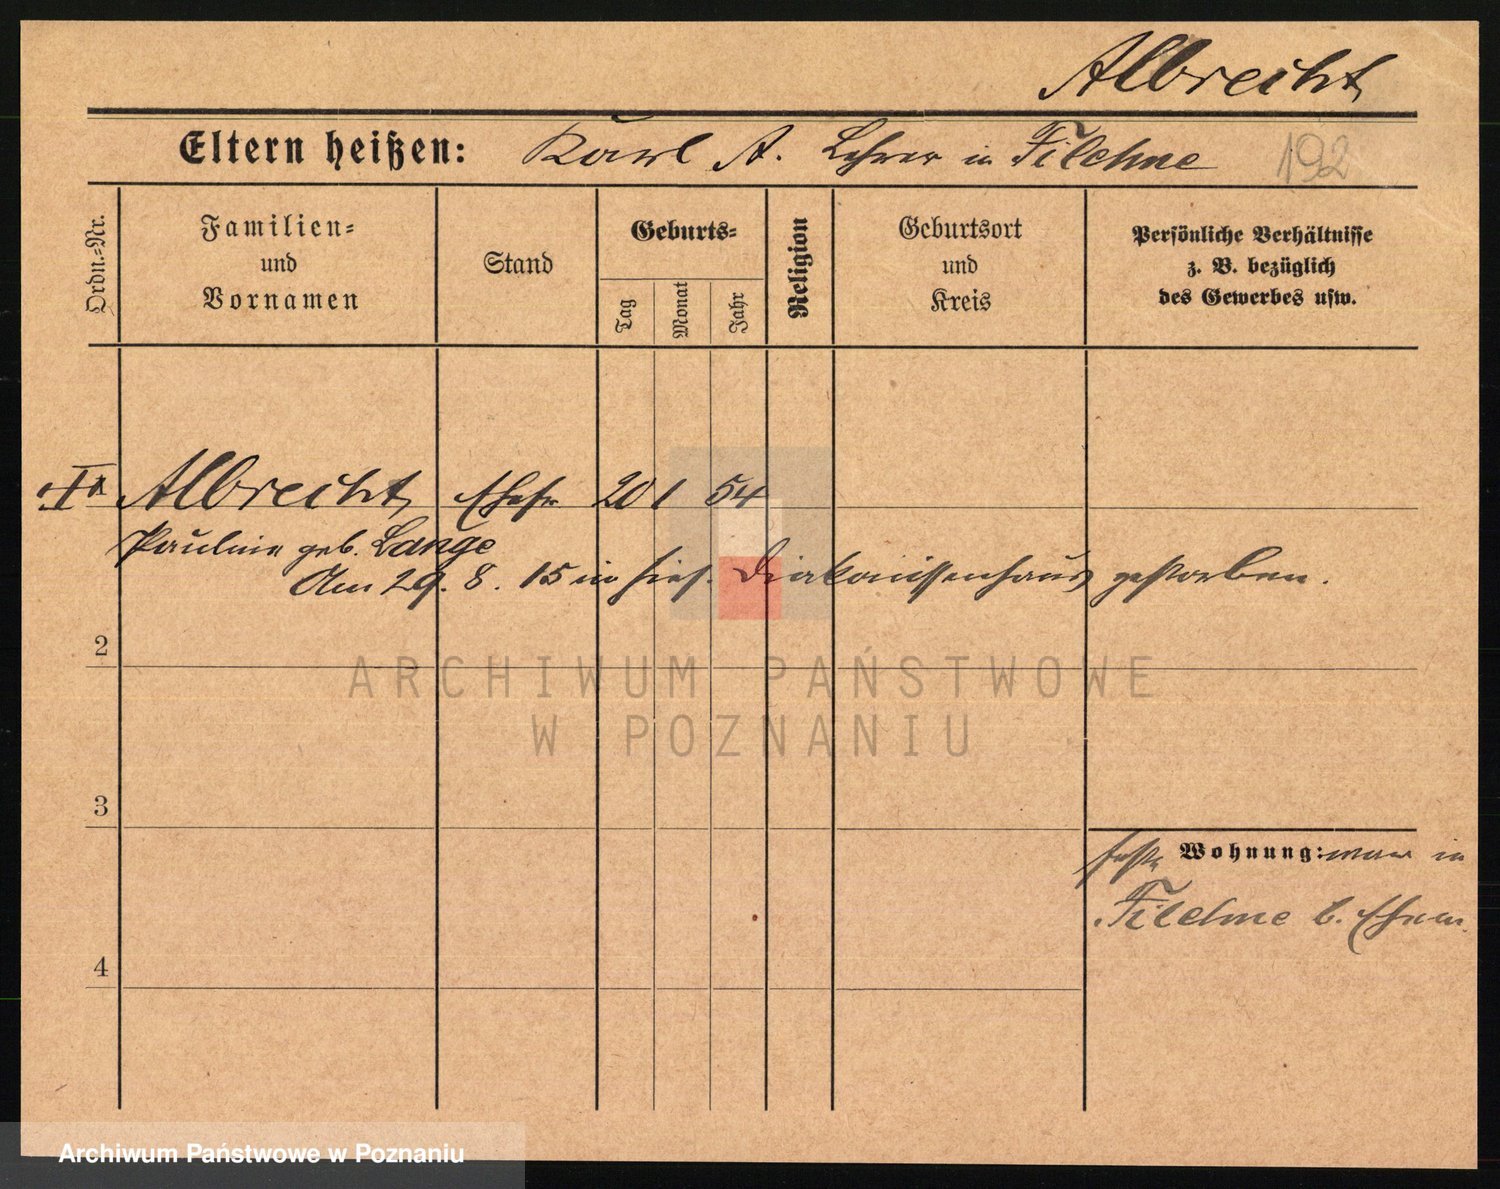 Albrecht
Eltern heißen: Karl A. Lehrer in Filehne 192
Ordn.-Nr.
Familien-
und
Vornamen
Stand
Geburts-
Tag
Monat
Jahr
Religion
Geburtsort
und
Kreis
Persönliche Verhältnisse
z. B. bezüglich
des Gewerbes usw.
Albrecht Ehefr 20 1 54
Pauline geb. Lange
Am 29. 8. 15 in hies. Diakonissenhaus gestorben.
2
ARCHIWUM PAŃSTWOWE
W POZNANIU
3
feste Wohnung: war in
Filehne b. Ehem.
4
Archiwum Państwowe w Poznaniu